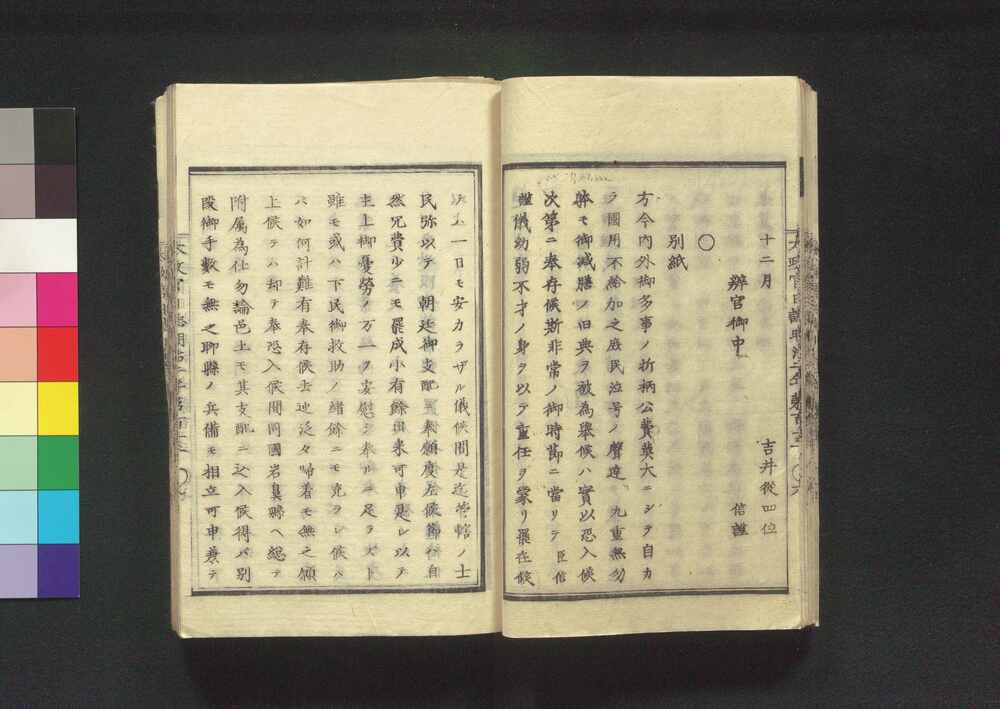 十二月 吉井従四位 信謹
辨官御中
〇
別紙
方今内外御多事ノ折柄公費莫大ニシテ自カ
ラ國用不給加之庶民泣号ノ聲達 九重無勿
躰モ御減膳ノ旧典ヲ被為擧候ハ實以恐入候
次第ニ奉存候斯非常ノ御時節ニ當リテ臣信
謹儀幼弱不才ノ身ヲ以テ重任ヲ蒙リ罷在候
一日モ安カラザル儀候間是迄管轄ノ士
民弥以テ朝廷御支配奉願度左候節ハ自
然冗費少ニモ罷成小有餘出来可申是レ以テ
主上御憂勞ノ万一ヲ安慰シ奉ルニ足ラズト
雖モ或ハ下民御救助ノ緒餘ニモ充ラレ候ハ
バ如何計難有奉存候去迚泛々帰着モ無之願
上候テハ却テ奉恐入候間同國岩鼻縣ヘ総テ
附属為仕勿論邑土モ其支配ニ込入候得バ別
段御手數モ無之聊縣ノ兵備モ相立可申兼テ